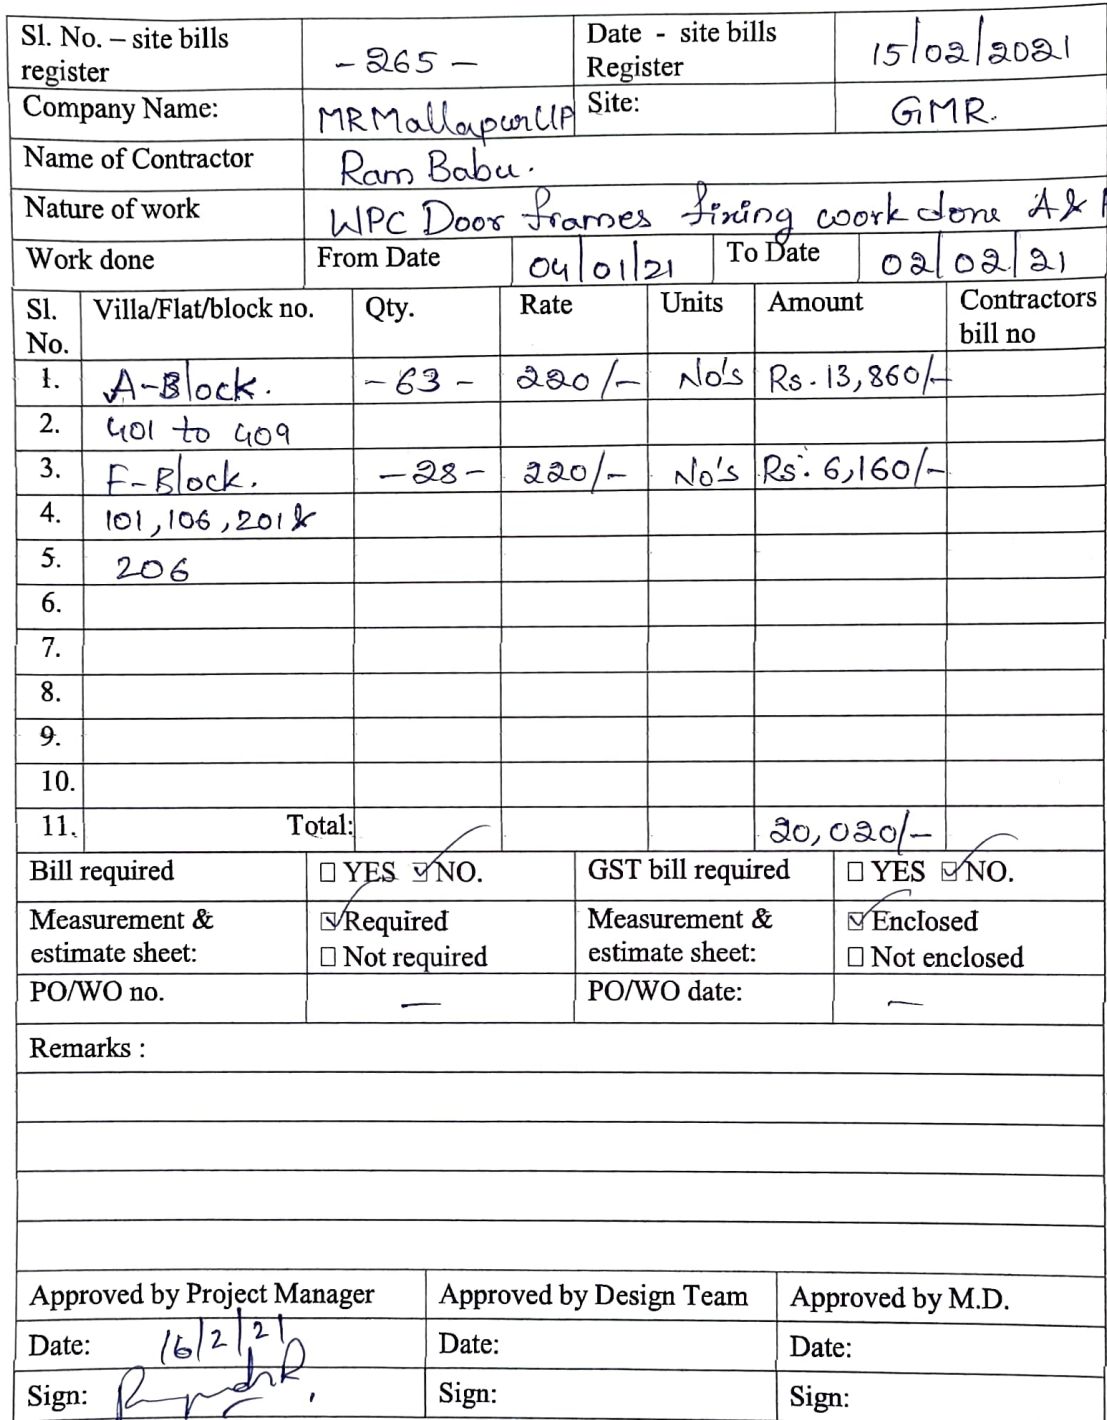 Sl. No. – site bills register -265- Date - site bills Register 15/02/2021
Company Name: MRMallapurLLP Site: GMR.
Name of Contractor Ram Babu.
Nature of work WPC Door frames fixing work done A&
Work done From Date 04/01/21 To Date 02/02/21
Sl. No. Villa/Flat/block no. Qty. Rate Units Amount Contractors bill no
1. A-Block. -63- 220/- No's Rs. 13,860/-
2. 401 to 409
3. F-Block. -28- 220/- No's Rs. 6,160/-
4. 101,106,201&
5. 206
6.
7.
8.
9.
10.
11. Total: 20,020/-
Bill required □ YES ☑ NO. GST bill required □ YES ☑ NO.
Measurement & estimate sheet: ☑ Required Measurement & estimate sheet: ☑ Enclosed
□ Not required □ Not enclosed
PO/WO no. — PO/WO date: —
Remarks :
Approved by Project Manager Approved by Design Team Approved by M.D.
Date: 16/2/21 Date: Date:
Sign: Sign: Sign: